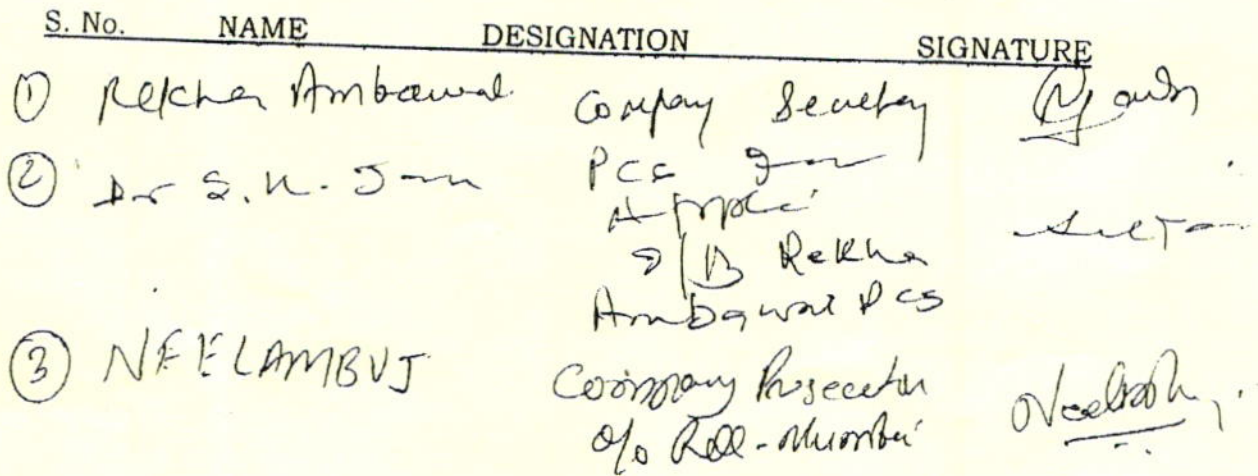 S. No. NAME DESIGNATION SIGNATURE
① Rekha Ambawal Company Secretary
② Dr S.K. Jain PCS for
Rekha
Ambawal PCS
③ NEELAMBUJ Company Prosecutor
o/o RoC-Mumbai